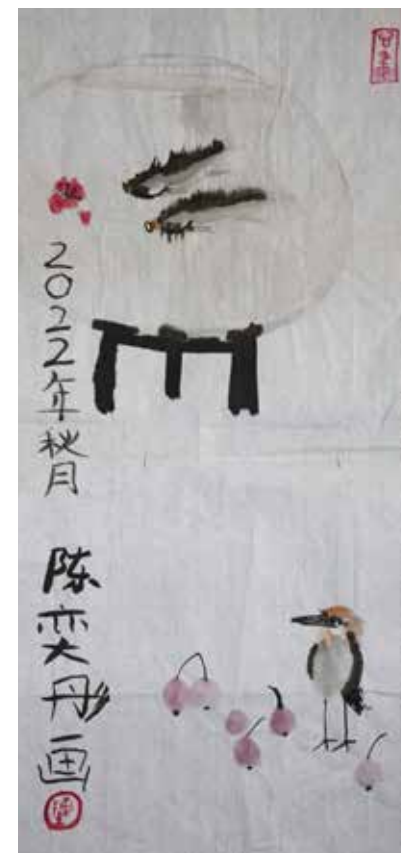 2022年秋月
陈奕彤画